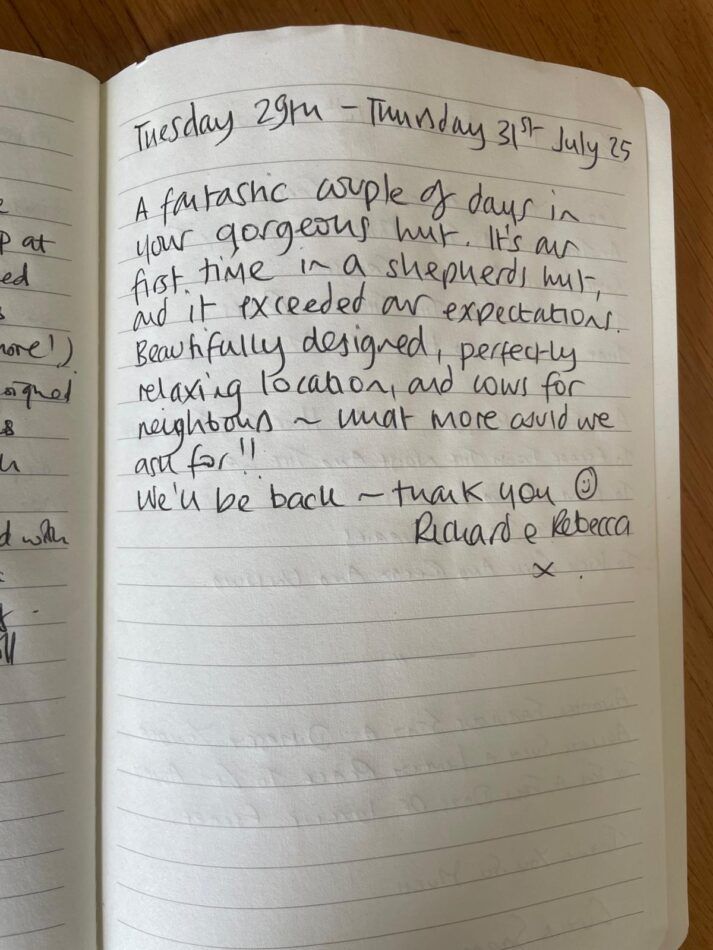 Tuesday 29th - Thursday 31st July 25
A fantastic couple of days in
your gorgeous hut. It's our
first time in a shepherds hut,
and it exceeded our expectations.
Beautifully designed, perfectly
relaxing location, and cows for
neighbours ~ what more could we
ask for!!
We'll be back ~ thank you ☺
Richard & Rebecca
x.